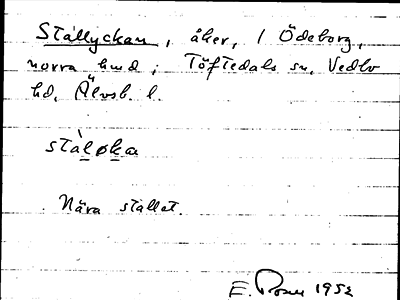 Stållyckan, åker, / Ödeborg,
norra hmd; Töftedals sn, Vedbo
hd, Älvsb. l.
ståløka
Nära stallet.
E. 1952